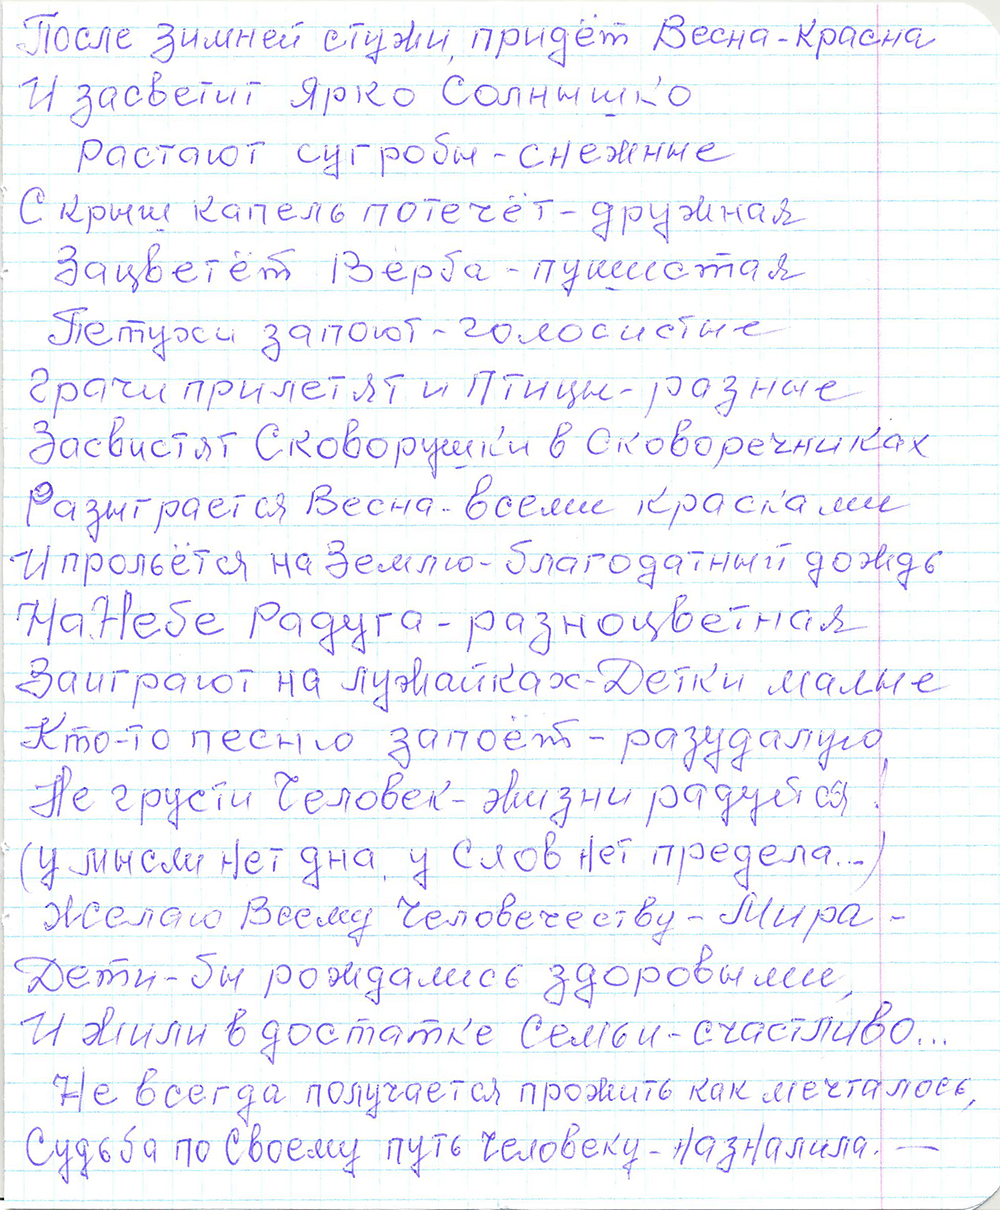 После зимней стужи, придёт Весна-Красна
И засветит Ярко Солнышко
Растают сугробы - снежные
С крыш капель потечёт - дружная
Зацветёт Верба - пушистая
Петухи запоют - голосистые
Грачи прилетят и Птицы - разные
Засвистят Скворушки в Сковоречниках
Разыграется Весна - всеми красками
И прольётся на Землю - благодатный дождь
На Небе Радуга - разноцветная
Заиграют на лужайках - Детки малые
Кто-то песню запоёт - разудалую
Не грусти Человек - жизни радуйся!
(у мысли нет дна, у Слов нет предела...)
Желаю Всему Человечеству - Мира -
Дети-бы рождались здоровыми,
И жили в достатке Семьи - счастливо...
Не всегда получается прожить как мечталось,
Судьба по Своему путь Человеку - назналила. —